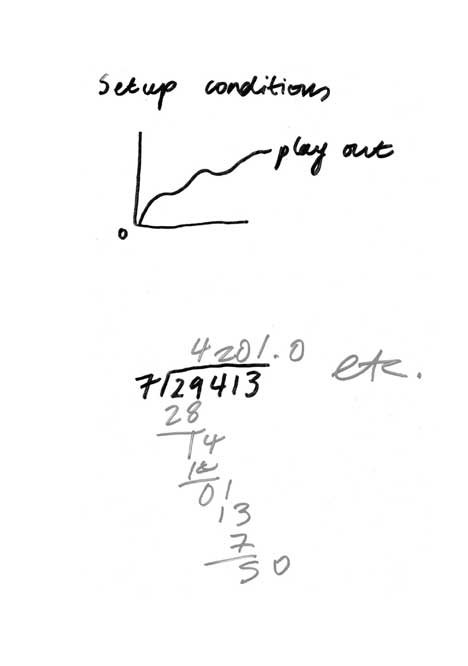 Setup conditions
play out
0
4201.0
etc.
7/29413
28
14
14
01
13
7
50